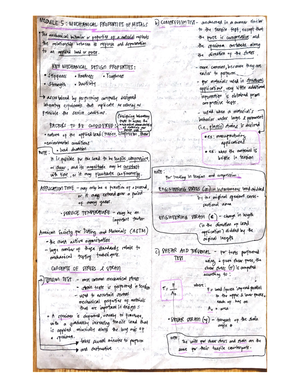 MODULE 5: MECHANICAL PROPERTIES OF METALS
the mechanical behavior or properties of a material reflects
the relationship between its response and deformation
to an applied load or force.
KEY MECHANICAL DESIGN PROPERTIES:
• Stiffness • Hardness • Toughness
• Strength • Ductility
• ascertained by performing carefully designed
laboratory experiments that replicate as nearly as
possible the service conditions.
FACTORS TO BE CONSIDERED
• nature of the applied load
environmental conditions
• load duration
NOTE:
It is possible for the load to be tensile, compressive,
or shear, and its magnitude may be constant
with time, or it may fluctuate continuously.
APPLICATION TIME - may only be a fraction of a second,
or it may extend over a period
of many years
SERVICE TEMPERATURE - may be an
important factor
American Society for Testing and Materials (ASTM)
- the most active organization
- large number of these standards relate to
mechanical testing techniques.
CONCEPTS OF STRESS & STRAIN
TENSION TEST - most common mechanical stress
- strain tests is performed in tension
- used to ascertain several
mechanical properties of materials
that are important in design.
• A specimen is deformed, usually to fracture,
with a gradually increasing tensile load that
is applied uniaxially along the long axis of
a specimen.
• takes several minutes to perform
and destructive
b) COMPRESSION TEST - conducted in a manner similar
to the tensile test, except that
the force is compressive and
the specimen contracts along
the direction of the stress
- more common because they are
easier to perform.
- for materials used in structural
applications, very little additional
information is obtained from
compressive tests.
- used when a material's
behavior under large & permanent
(i.e., plastic) strains is desired
• ex: manufacturing
applications
• ex: when the material is
brittle in tension
NOTE:
For loading in tension and compression
ENGINEERING STRESS
load divided
by the original cross-sectional
area
ENGINEERING STRAIN (ε) = change in length
(in the direction of load
application) divided by the
original length
c) SHEAR AND TORSIONAL - For tests performed
using a pure shear force, the
shear stress (τ) is computed
according to
τ = F / A₀
where
F = load or force imposed parallel
to the upper & lower faces,
each of
A₀ = area
SHEAR STRAIN (γ) - tangent of the strain
angle θ
NOTE:
The units for shear stress and strain are the
same for their tensile counterparts.